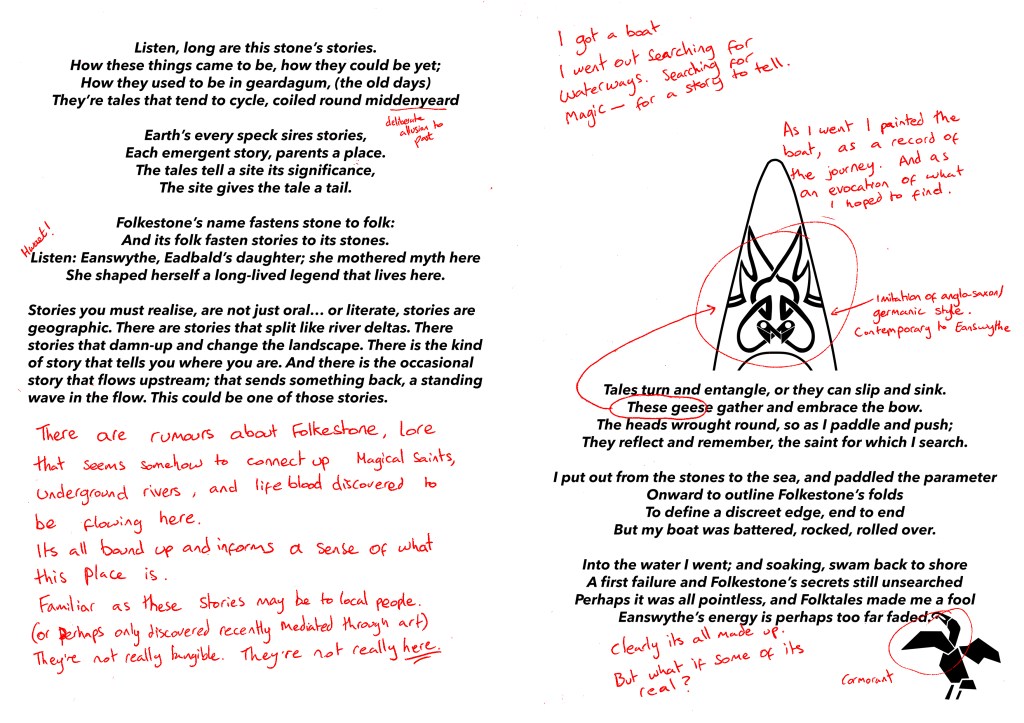 Listen, long are this stone's stories.
How these things came to be, how they could be yet;
How they used to be in geardagum, (the old days)
They're tales that tend to cycle, coiled round middenyeard
deliberate
allusion to
past
Earth's every speck sires stories,
Each emergent story, parents a place.
The tales tell a site its significance,
The site gives the tale a tail.
Folkestone's name fastens stone to folk:
And its folk fasten stories to its stones.
Hwaet!
Listen: Eanswythe, Eadbald's daughter; she mothered myth here
She shaped herself a long-lived legend that lives here.
Stories you must realise, are not just oral... or literate, stories are
geographic. There are stories that split like river deltas. There
stories that damn-up and change the landscape. There is the kind
of story that tells you where you are. And there is the occasional
story that flows upstream; that sends something back, a standing
wave in the flow. This could be one of those stories.
There are rumours about Folkestone, Lore
that seems somehow to connect up Magical Saints,
underground rivers, and life blood discovered to
be flowing here.
Its all bound up and informs a sense of what
this place is.
Familiar as these stories may be to local people.
(or Perhaps only discovered recently mediated through art)
They're not really tangible. They're not really here.
I got a boat
I went out searching for
waterways. Searching for
Magic — for a story to tell.
As I went I painted the
boat, as a record of
the journey. And as
an evocation of what
I hoped to find.
Imitation of anglo-saxon/
germanic style.
Contemporary to Eanswythe
Tales turn and entangle, or they can slip and sink.
These geese gather and embrace the bow.
The heads wrought round, so as I paddle and push;
They reflect and remember, the saint for which I search.
I put out from the stones to the sea, and paddled the parameter
Onward to outline Folkestone's folds
To define a discreet edge, end to end
But my boat was battered, rocked, rolled over.
Into the water I went; and soaking, swam back to shore
A first failure and Folkestone's secrets still unsearched
Perhaps it was all pointless, and Folktales made me a fool
Eanswythe's energy is perhaps too far faded.
Clearly its all made up.
But what if some of its
real?
Cormorant